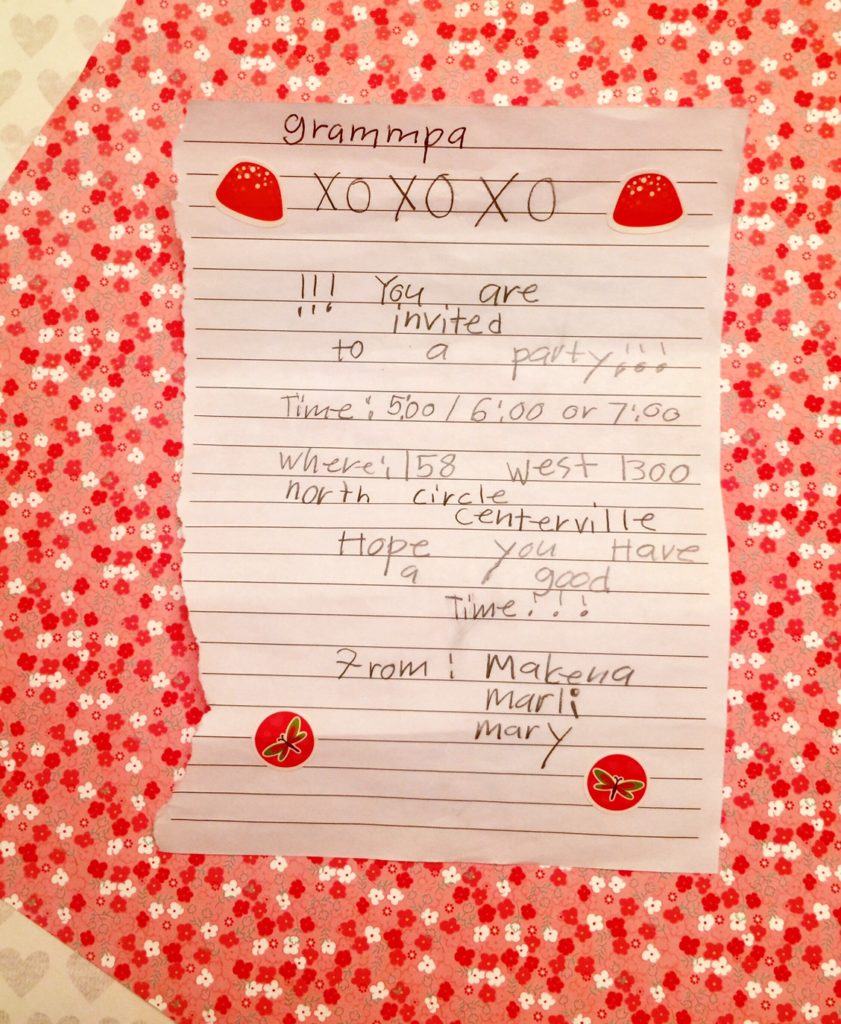 grammpa
XO XO XO
!!! You are
invited
to a party!!!
Time: 5:00 / 6:00 or 7:00
where: 158 west 1300
north circle
centerville
Hope you Have
a good
Time!!!
From: Makena
marli
mary